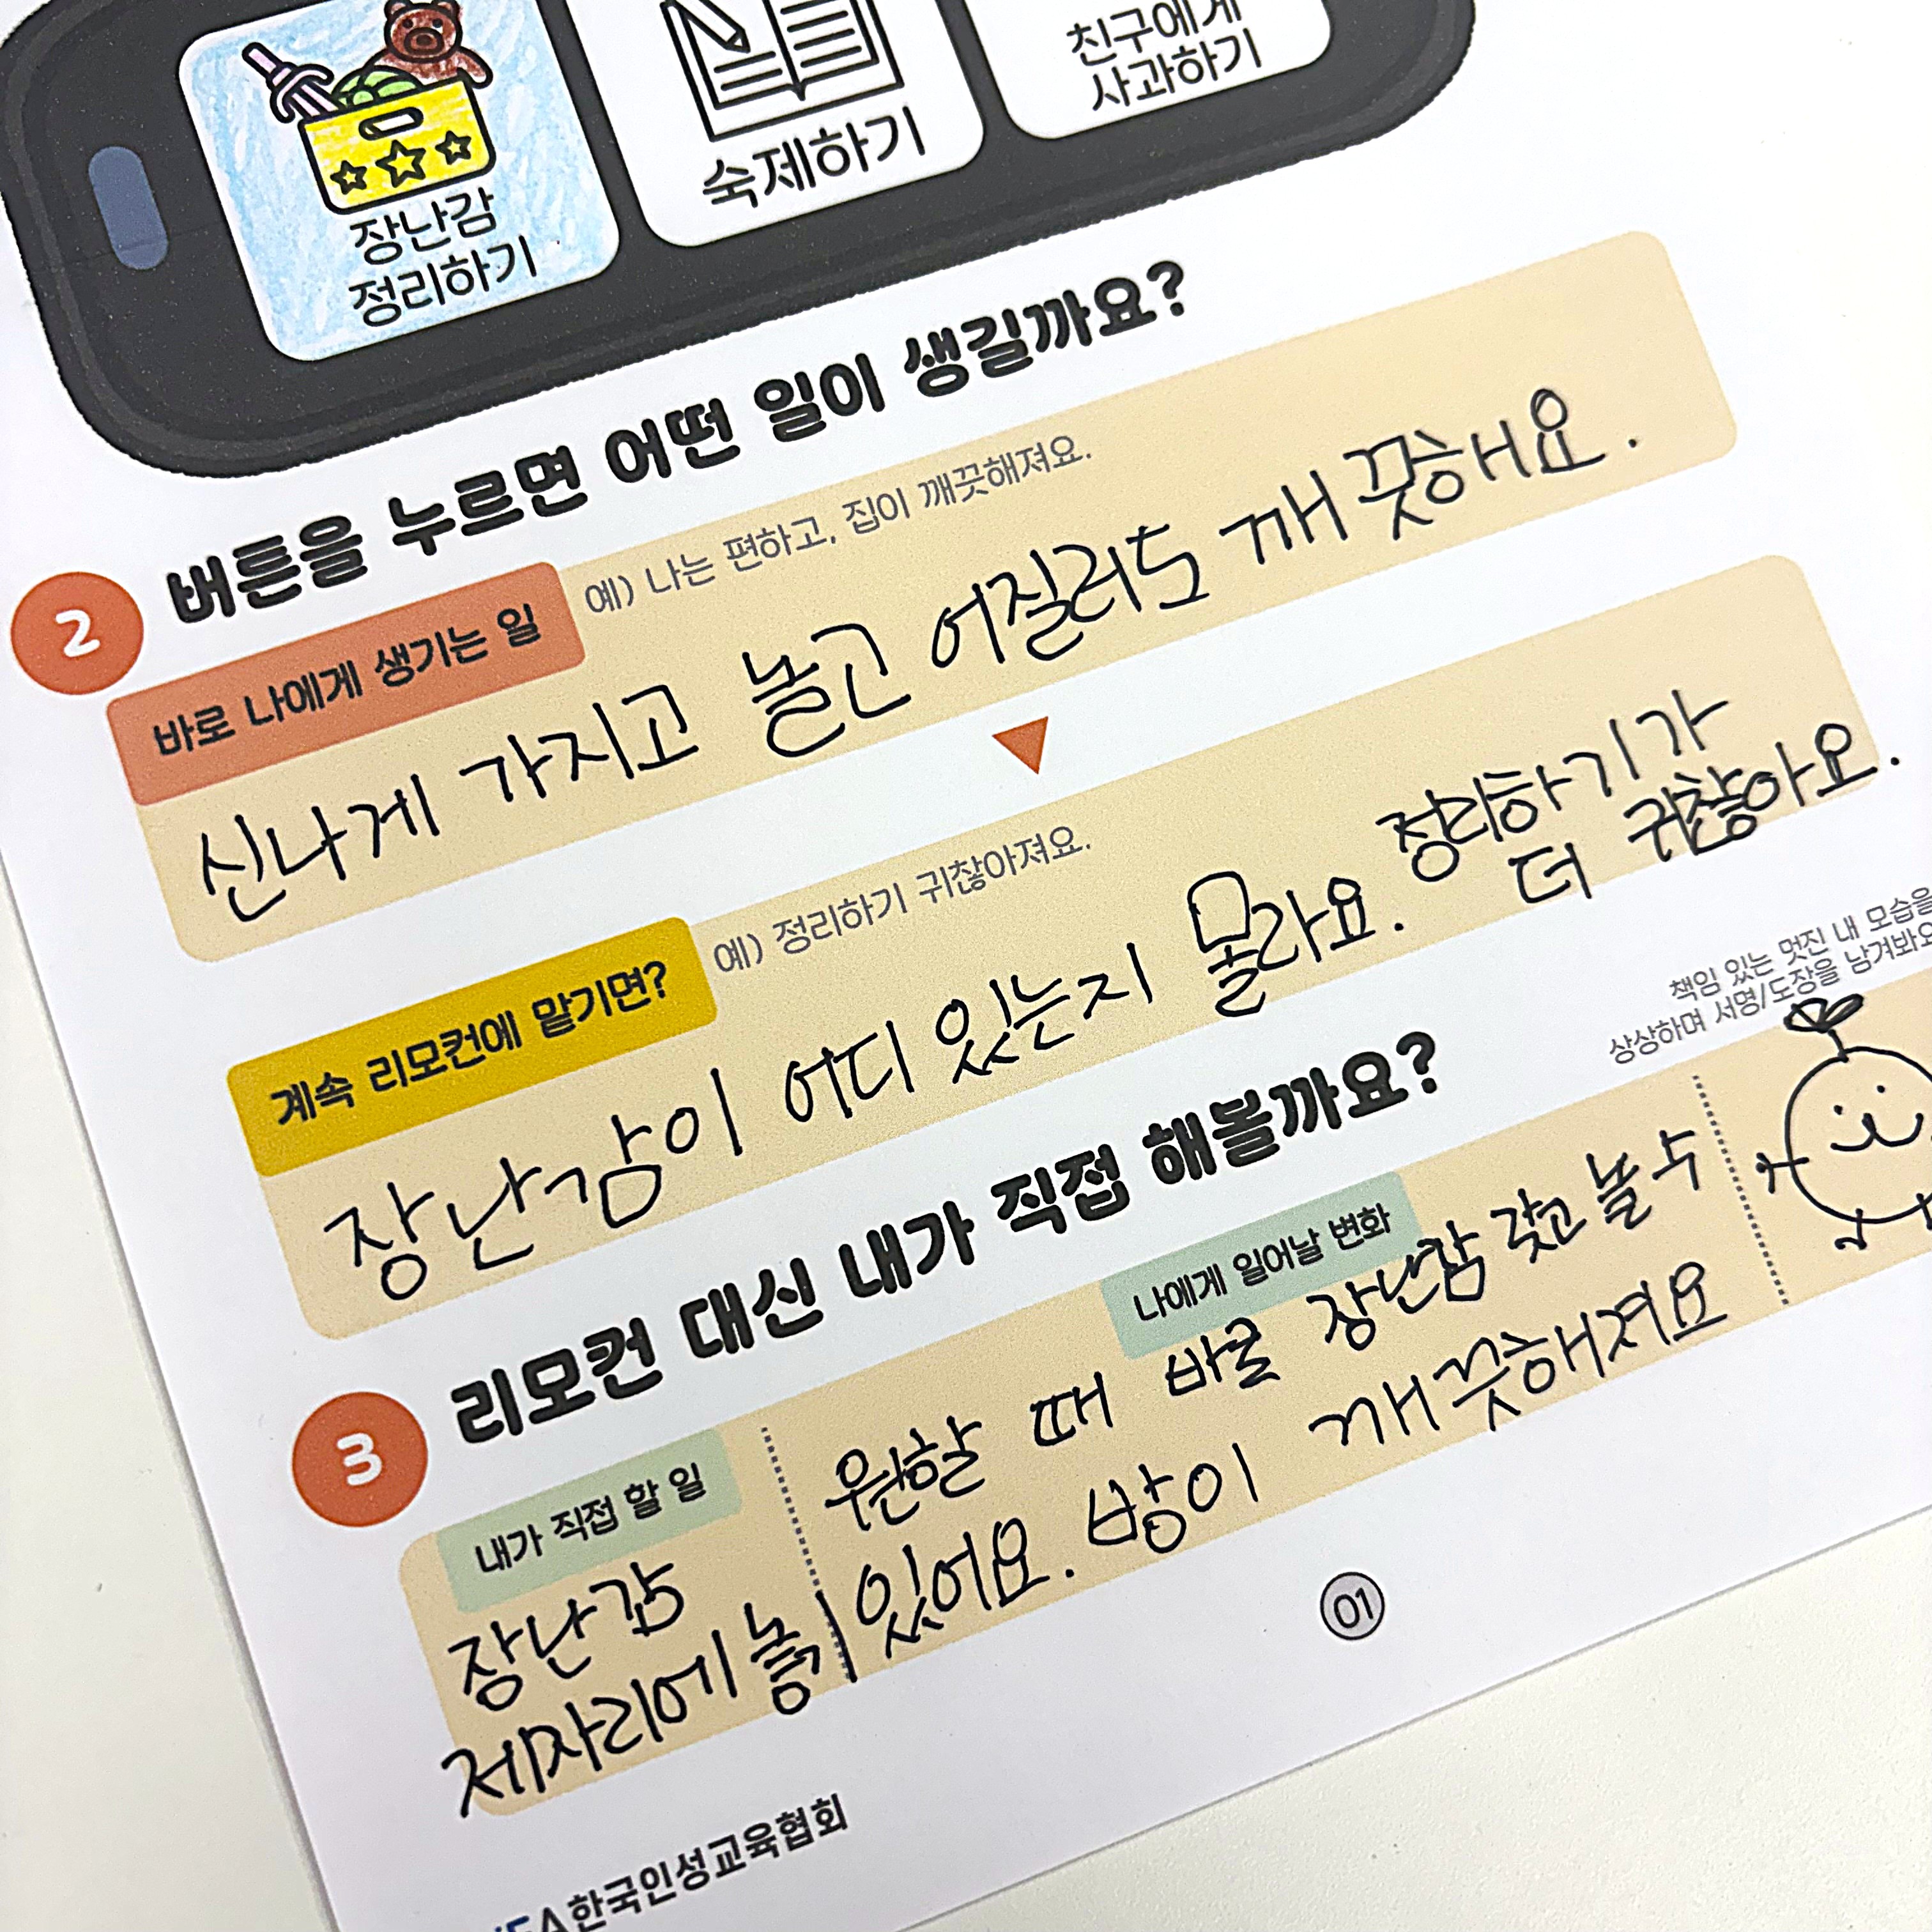 장난감
정리하기
숙제하기
친구에게
사과하기
2 버튼을 누르면 어떤 일이 생길까요?
바로 나에게 생기는 일
예) 나는 편하고, 집이 깨끗해져요.
신나게 가지고 놀고 어질러도 깨끗해요.
계속 리모컨에 맡기면?
예) 정리하기 귀찮아져요.
장난감이 어디 있는지 몰라요. 정리하기가
더 귀찮아요.
책임 있는 멋진 내 모습을
상상하며 서명/도장을 남겨봐요
3 리모컨 대신 내가 직접 해볼까요?
내가 직접 할 일
장난감
제자리에 놓기
나에게 일어날 변화
원할 때 바로 장난감 갖고 놀 수
있어요. 방이 깨끗해져요
01
한국인성교육협회